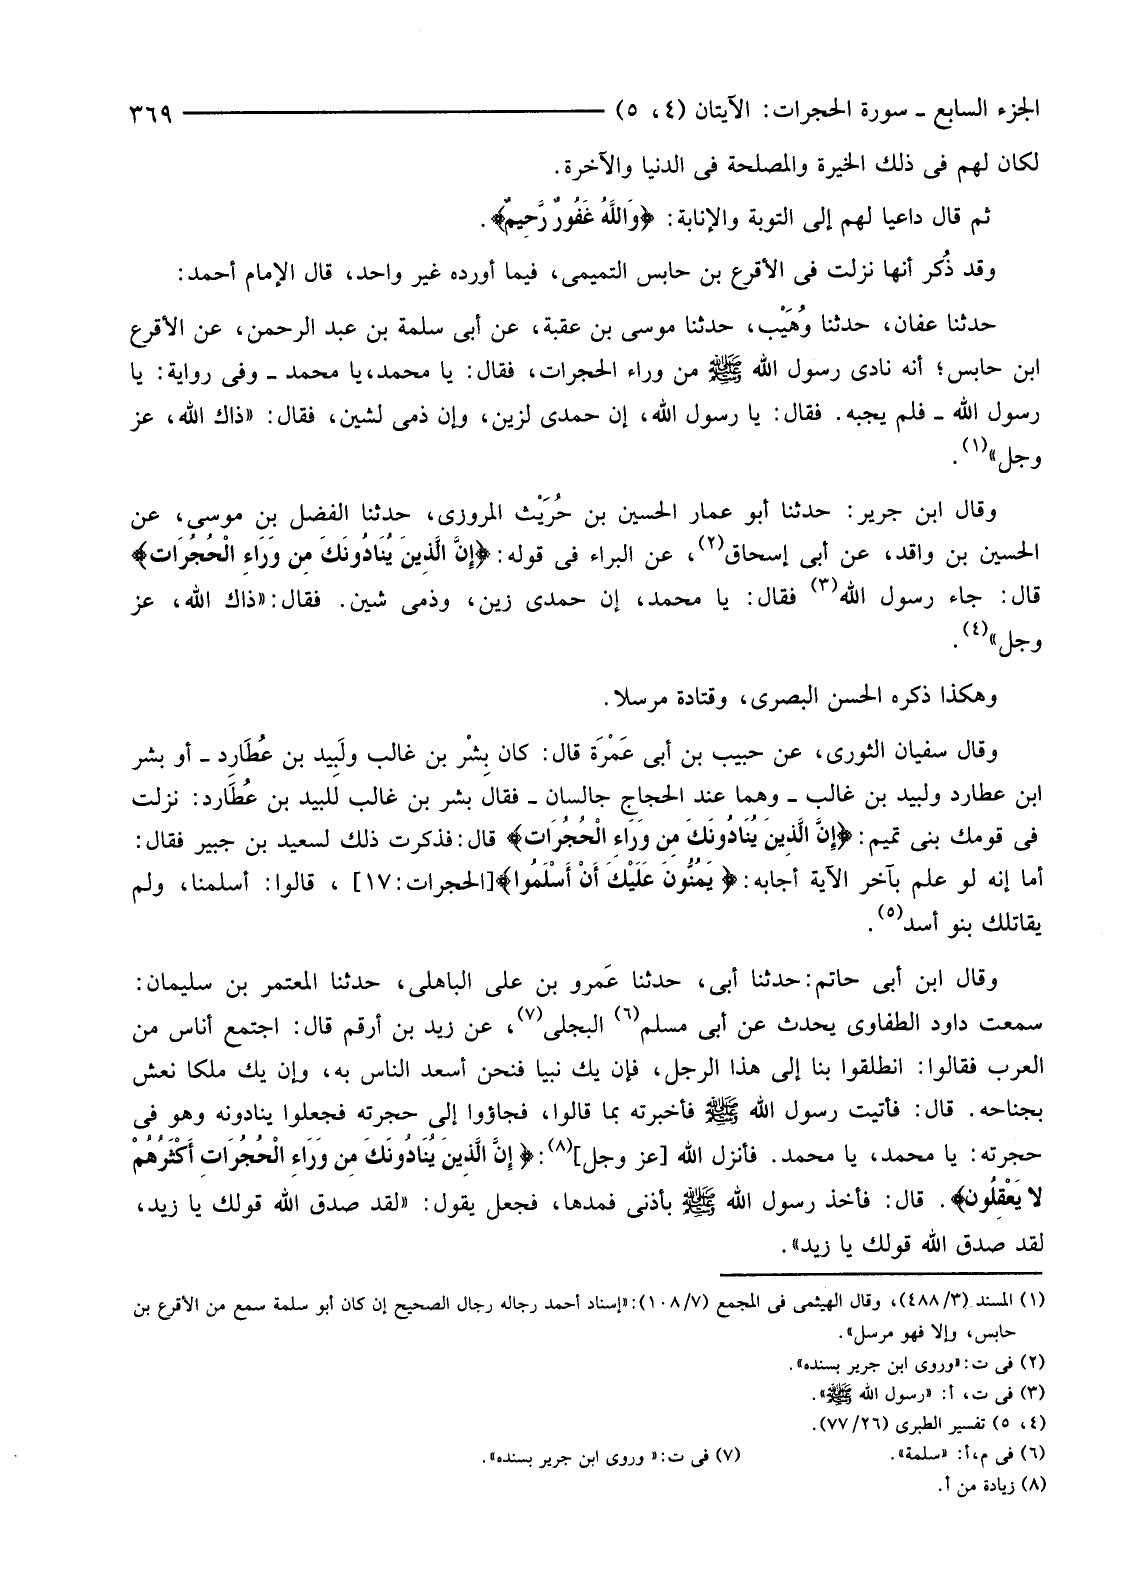 الجزء السابع ـ سورة الحجرات: الآيتان (٤، ٥) ٣٦٩
لكان لهم فى ذلك الخيرة والمصلحة فى الدنيا والآخرة.
ثم قال داعيا لهم إلى التوبة والإنابة: ﴿وَاللَّهُ غَفُورٌ رَّحِيمٌ﴾.
وقد ذُكر أنها نزلت فى الأقرع بن حابس التميمى، فيما أورده غير واحد، قال الإمام أحمد:
حدثنا عفان، حدثنا وُهَيْب، حدثنا موسى بن عقبة، عن أبى سلمة بن عبد الرحمن، عن الأقرع
ابن حابس؛ أنه نادى رسول الله ﷺ من وراء الحجرات، فقال: يا محمد، يا محمد ـ وفى رواية: يا
رسول الله ـ فلم يجبه. فقال: يا رسول الله، إن حمدى لزين، وإن ذمى لشين، فقال: «ذاك الله، عز
وجل»(١).
وقال ابن جرير: حدثنا أبو عمار الحسين بن حُرَيْث المروزى، حدثنا الفضل بن موسى، عن
الحسين بن واقد، عن أبى إسحاق(٢)، عن البراء فى قوله: ﴿إِنَّ الَّذِينَ يُنَادُونَكَ مِن وَرَاءِ الْحُجُرَاتِ﴾
قال: جاء رسول الله(٣) فقال: يا محمد، إن حمدى زين، وذمى شين. فقال: «ذاك الله، عز
وجل»(٤).
وهكذا ذكره الحسن البصرى، وقتادة مرسلا.
وقال سفيان الثورى، عن حبيب بن أبى عَمْرَة قال: كان بِشْر بن غالب ولَبِيد بن عُطَارِد ـ أو بشر
ابن عطارد ولبيد بن غالب ـ وهما عند الحجاج جالسان ـ فقال بشر بن غالب للبيد بن عُطَارد: نزلت
فى قومك بنى تميم: ﴿إِنَّ الَّذِينَ يُنَادُونَكَ مِن وَرَاءِ الْحُجُرَاتِ﴾ قال: فذكرت ذلك لسعيد بن جبير فقال:
أما إنه لو علم بآخر الآية أجابه: ﴿يَمُنُّونَ عَلَيْكَ أَنْ أَسْلَمُوا﴾[الحجرات:١٧] ، قالوا: أسلمنا، ولم
يقاتلك بنو أسد(٥).
وقال ابن أبى حاتم: حدثنا أبى، حدثنا عَمرو بن على الباهلى، حدثنا المعتمر بن سليمان:
سمعت داود الطفاوى يحدث عن أبى مسلم(٦) البجلى(٧)، عن زيد بن أرقم قال: اجتمع أناس من
العرب فقالوا: انطلقوا بنا إلى هذا الرجل، فإن يك نبيا فنحن أسعد الناس به، وإن يك ملكا نعش
بجناحه. قال: فأتيت رسول الله ﷺ فأخبرته بما قالوا، فجاؤوا إلى حجرته فجعلوا ينادونه وهو فى
حجرته: يا محمد، يا محمد. فأنزل الله [عز وجل](٨): ﴿إِنَّ الَّذِينَ يُنَادُونَكَ مِن وَرَاءِ الْحُجُرَاتِ أَكْثَرُهُمْ
لا يَعْقِلُونَ﴾. قال: فأخذ رسول الله ﷺ بأذنى فمدها، فجعل يقول: «لقد صدق الله قولك يا زيد،
لقد صدق الله قولك يا زيد».
(١) المسند (٤٨٨/٣)، وقال الهيثمى فى المجمع (١٠٨/٧): «إسناد أحمد رجاله رجال الصحيح إن كان أبو سلمة سمع من الأقرع بن
حابس، وإلا فهو مرسل».
(٢) فى ت: «وروى ابن جرير بسنده».
(٣) فى ت، أ: «رسول الله ﷺ».
(٤، ٥) تفسير الطبرى (٧٧/٢٦).
(٦) فى م،أ: «سلمة». (٧) فى ت: « وروى ابن جرير بسنده».
(٨) زيادة من أ.